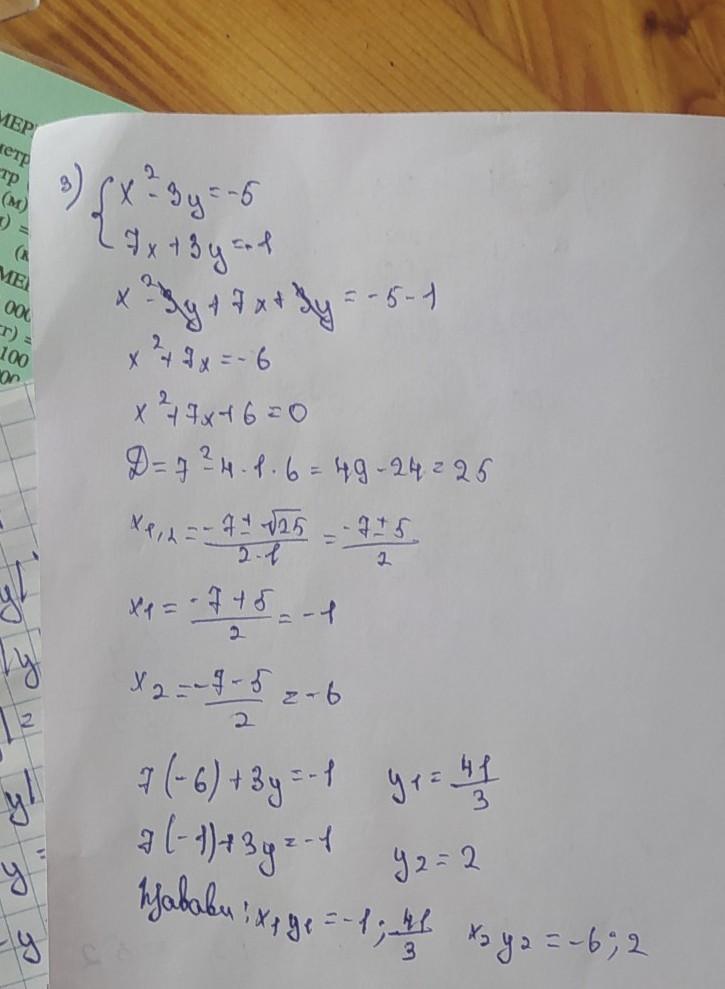 МЕР
метр
тр
(м)
) =
(к
МЕ
000
г) =
100
00
3) { x² - 3y = -5
7x + 3y = -1
x² - 3y + 7x + 3y = -5 - 1
x² + 7x = -6
x² + 7x + 6 = 0
D = 7² - 4 · 1 · 6 = 49 - 24 = 25
x1,2 = -7 ± √25 / 2·1 = -7 ± 5 / 2
x1 = -7 + 5 / 2 = -1
x2 = -7 - 5 / 2 = -6
7(-6) + 3y = -1 y1 = 41/3
7(-1) + 3y = -1 y2 = 2
Ҷавоби: x1y1 = -1; 41/3 x2y2 = -6; 2